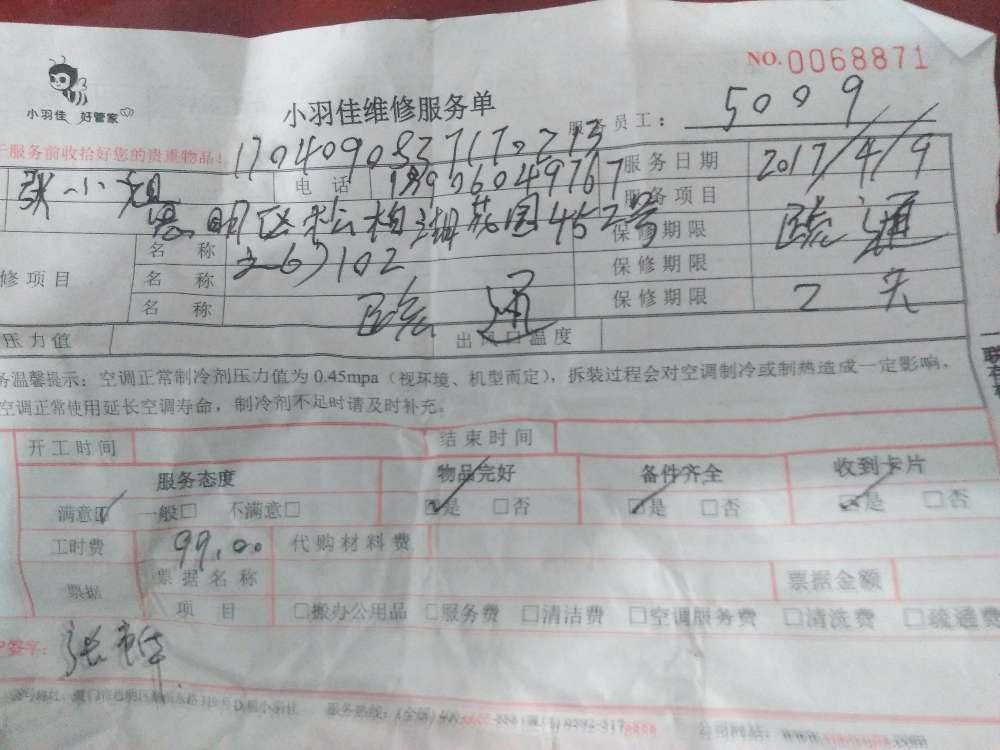 NO.0068871
小羽佳 好管家
小羽佳维修服务单
服务员工： 5009
服务前收拾好您的贵重物品！
张小姐 电话 服务日期 2017/4/9
思明区松柏湖花园452号 服务项目 疏通
名称 之一(6)102 保修期限
修项目 名称 保修期限
名称 疏通 保修期限 2天
压力值 出风口温度
务温馨提示：空调正常制冷剂压力值为 0.45mpa（视环境、机型而定），拆装过程会对空调制冷或制热造成一定影响，
空调正常使用延长空调寿命，制冷剂不足时请及时补充。
开工时间 结束时间
服务态度 物品完好 备件齐全 收到卡片
满意☑ 一般□ 不满意□ ☑是 □否 ☑是 □否 ☑是 □否
工时费 99.00 代购材料费
票据 票据名称 票据金额
项目 □搬办公用品 □服务费 □清洁费 □空调服务费 □清洗费 □疏通费
签字：
服务热线：
公司网站：